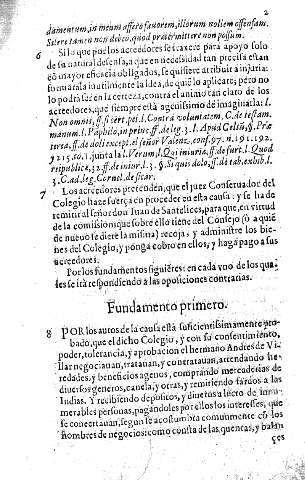 2
damentum, in meum assero fauorem, illorum nollem offensam.
Silere tamen non debeo, quod prætermittere non possum.
6 Si lo que por los acreedores se traxere para apoyo solo
de su natural defensa, a que en necessidad tan precisa estan
cõ mayor eficacia obligados, se quisiere atribuir a injuria:
formarála inutilmente la idea, de quiẽ lo aplicare; pero no
lo podrá ser en la certeza, contra el animo tan claro de los
acreedores, que siempre está agenissimo de imaginarla: l.
Non omnis, ff. si cert. pet. l. Contra voluntatem, C. de testam.
manum. l. Papinio, in princ. ff. de leg. 3. l. Apud Celsũ, §. Præ
terea, ff. de doli except. el señor Valenz. conf. 97. n. 191. 192.
y 215. to. 1. junta la l. Verum, l. Qui iniuria, ff. de furt. l. Quod
reipublicæ, 32. ff. de iniur. l. 3. §. Si quis dolo, ff. de tab. exhib. l.
5. C. ad leg. Cornel. de sicar.
7 Los acreedores pretenden, que el juez Conseruador del
Colegio haze fuerça en proceder en esta causa: y se ha de
remitir al señor don Juan de Santelices, para que, en virtud
de la comission que sobre ello tiene del Consejo (ò a quiẽ
de nueuo se diere la misma) recoja, y administre los bie-
nes del Colegio, y ponga cobro en ellos, y haga pago a sus
acreedores.
Por los fundamentos siguiẽtes: en cada vno de los qua-
les se irà respondiendo a las oposiciones contrarias.
Fundamento primero.
8 POR los autos de la causa está suficientissimamente pro-
bado, que el dicho Colegio, y con su consentimiento,
poder, tolerancia, y aprobacion el hermano Andres de Vi-
llar negociauan, tratauan, y contratauan, arrendando he-
redades, y beneficios agenos, comprando mercaderias de
diuersos generos, canela, y otras, y remitiendo fardos a las
Indias. Y recibiendo depositos, y dineros a lucro de innu-
merables personas, pagandoles por ellos los interesses, que
se concertauan, segun se acostumbra comunmente cõ los
hombres de negocios: como consta de las quentas, y balan
ces